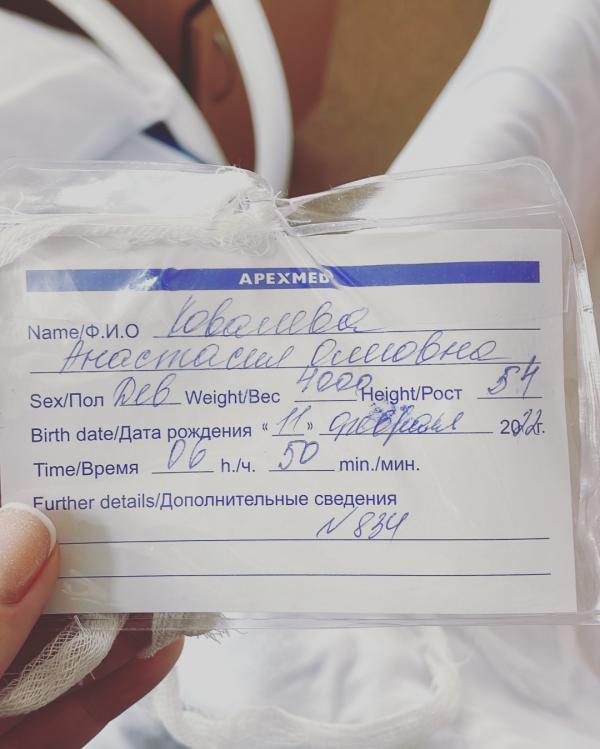 APEXMED
Name/Ф.И.О Ковалева
Анастасия Олеговна
Sex/Пол Дев Weight/Вес 4000 Height/Рост 54
Birth date/Дата рождения « 11 » февраля 2022г.
Time/Время 06 h./ч. 50 min./мин.
Further details/Дополнительные сведения
N 834